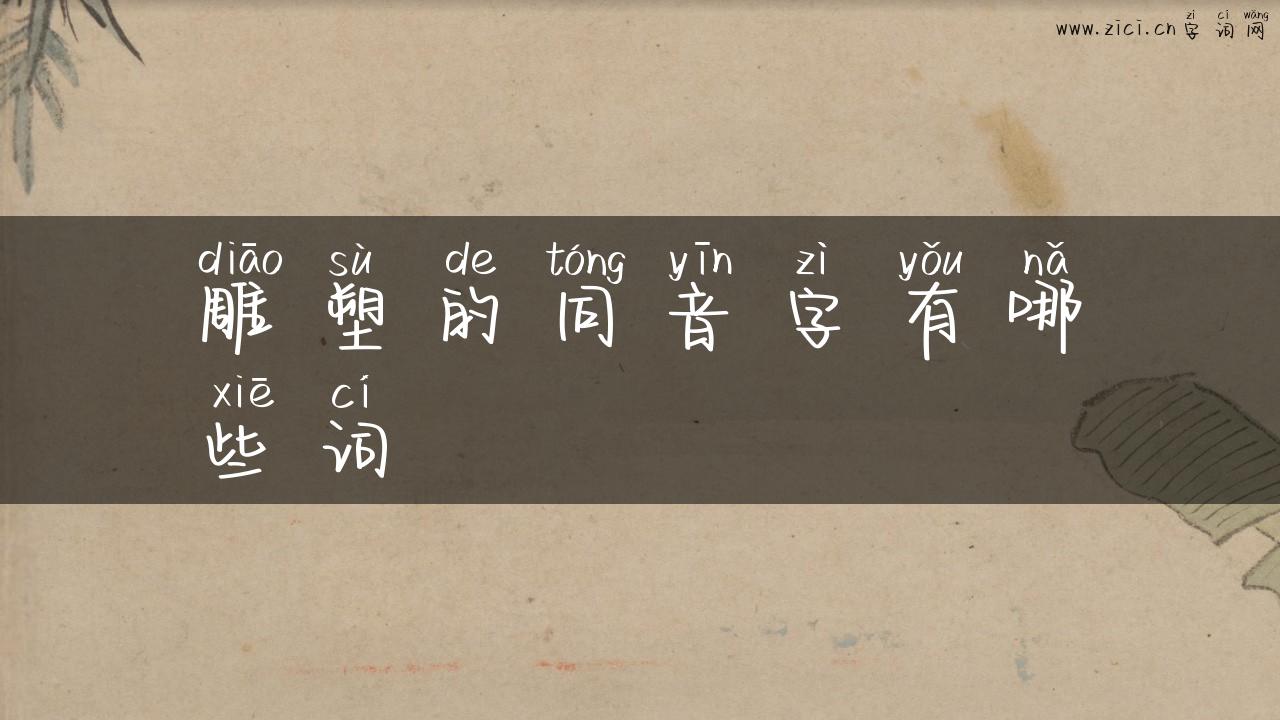 zì cí wǎng
www.zici.cn 字 词 网
diāo sù de tóng yīn zì yǒu nǎ
雕 塑 的 同 音 字 有 哪
xiē cí
些 词